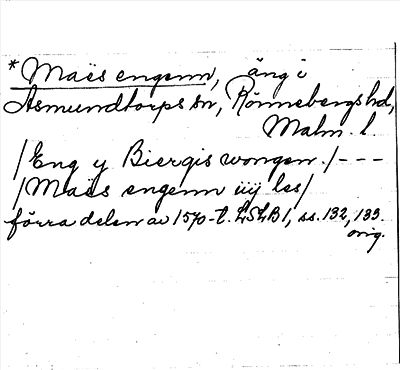 *Maës engenn, äng i
Asmundtorps sn, Rönnebergs hd,
Malm. l.
/Eng y Biergis wongen./---
/Maës engenn iiij les/
förra delen av 1570-t. LSLB1, ss. 132, 133.
orig.